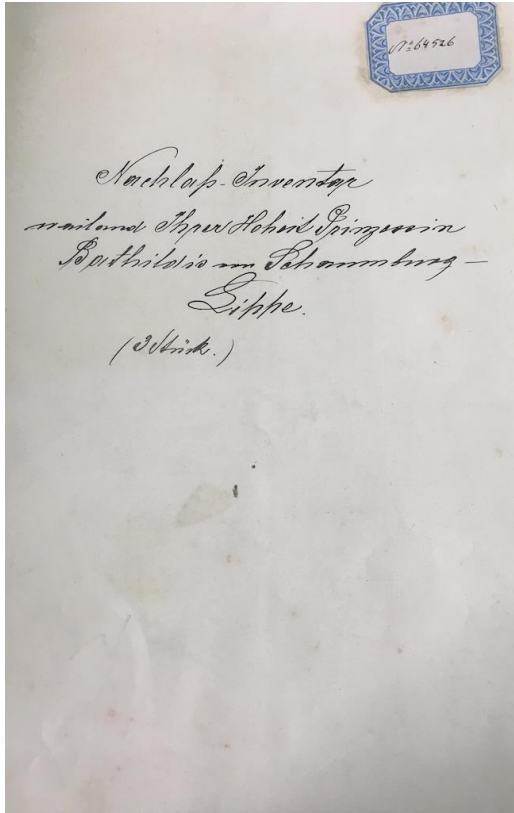 № 64526
Nachlaß-Inventar
weiland Ihrer Hoheit Prinzessin
Bathildis von Schaumburg-
Lippe.
(3 Stück.)